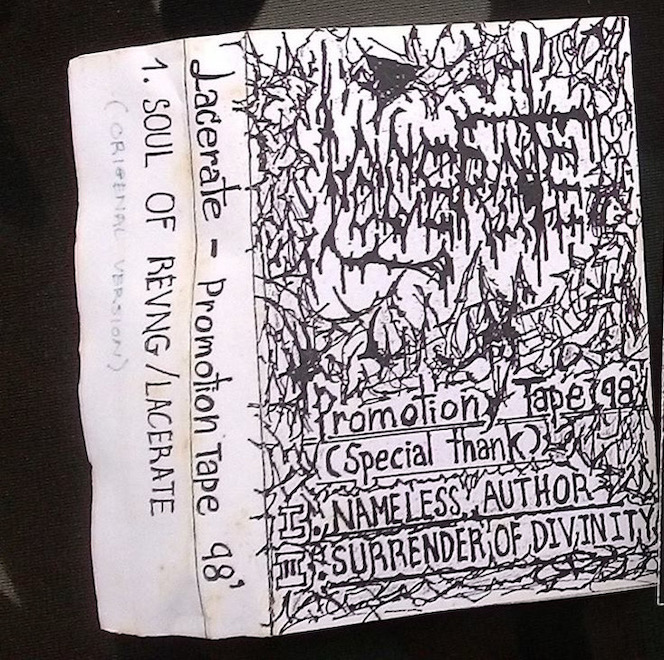 LACERATE
Promotion Tape '98'
(Special thank)
I. NAMELESS AUTHOR
II. SURRENDER OF DIVINITY
Lacerate - Promotion Tape 98'
1. SOUL OF REVNG/LACERATE
(ORIGENAL VERSION)